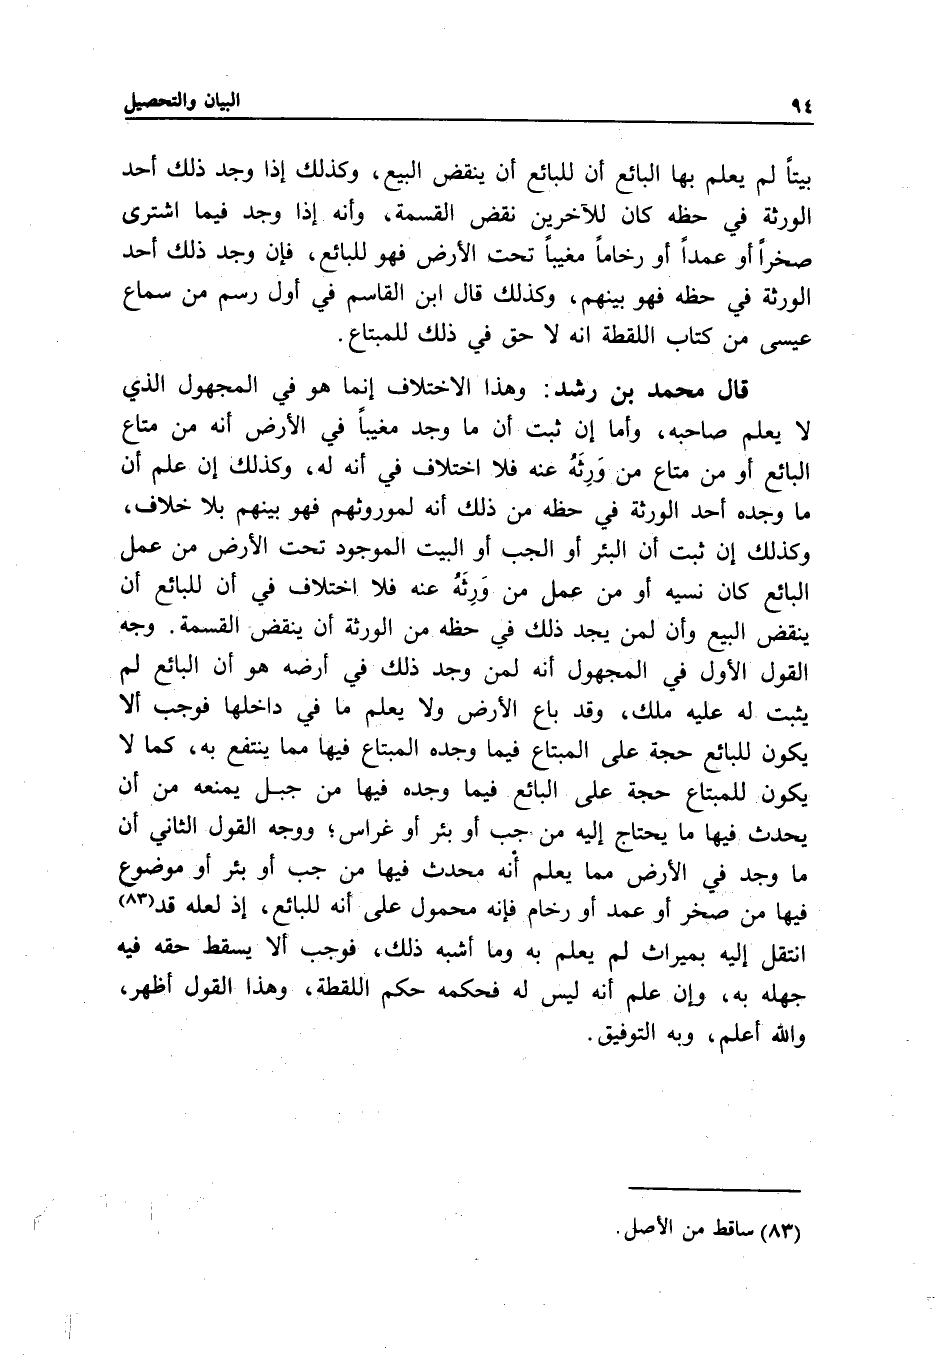 ٩٤
البيان والتحصيل
بيتاً لم يعلم بها البائع أن للبائع أن ينقض البيع، وكذلك إذا وجد ذلك أحد
الورثة في حظه كان للآخرين نقض القسمة، وأنه إذا وجد فيما اشترى
صخراً أو عمداً أو رخاماً مغيباً تحت الأرض فهو للبائع، فإن وجد ذلك أحد
الورثة في حظه فهو بينهم، وكذلك قال ابن القاسم في أول رسم من سماع
عيسى من كتاب اللقطة انه لا حق في ذلك للمبتاع.
قال محمد بن رشد: وهذا الاختلاف إنما هو في المجهول الذي
لا يعلم صاحبه، وأما إن ثبت أن ما وجد مغيباً في الأرض أنه من متاع
البائع أو من متاع من وَرِثَهُ عنه فلا اختلاف في أنه له، وكذلك إن علم أن
ما وجده أحد الورثة في حظه من ذلك أنه لموروثهم فهو بينهم بلا خلاف،
وكذلك إن ثبت أن البئر أو الجب أو البيت الموجود تحت الأرض من عمل
البائع كان نسيه أو من عمل من وَرِثَهُ عنه فلا اختلاف في أن للبائع أن
ينقض البيع وأن لمن يجد ذلك في حظه من الورثة أن ينقض القسمة. وجه
القول الأول في المجهول أنه لمن وجد ذلك في أرضه هو أن البائع لم
يثبت له عليه ملك، وقد باع الأرض ولا يعلم ما في داخلها فوجب ألا
يكون للبائع حجة على المبتاع فيما وجده المبتاع فيها مما ينتفع به، كما لا
يكون للمبتاع حجة على البائع فيما وجده فيها من جبل يمنعه من أن
يحدث فيها ما يحتاج إليه من جب أو بئر أو غراس؛ ووجه القول الثاني أن
ما وجد في الأرض مما يعلم أنه محدث فيها من جب أو بئر أو موضوع
فيها من صخر أو عمد أو رخام فإنه محمول على أنه للبائع، إذ لعله قد(٨٣)
انتقل إليه بميراث لم يعلم به وما أشبه ذلك، فوجب ألا يسقط حقه فيه
جهله به، وإن علم أنه ليس له فحكمه حكم اللقطة، وهذا القول أظهر،
والله أعلم، وبه التوفيق.
(٨٣) ساقط من الأصل.